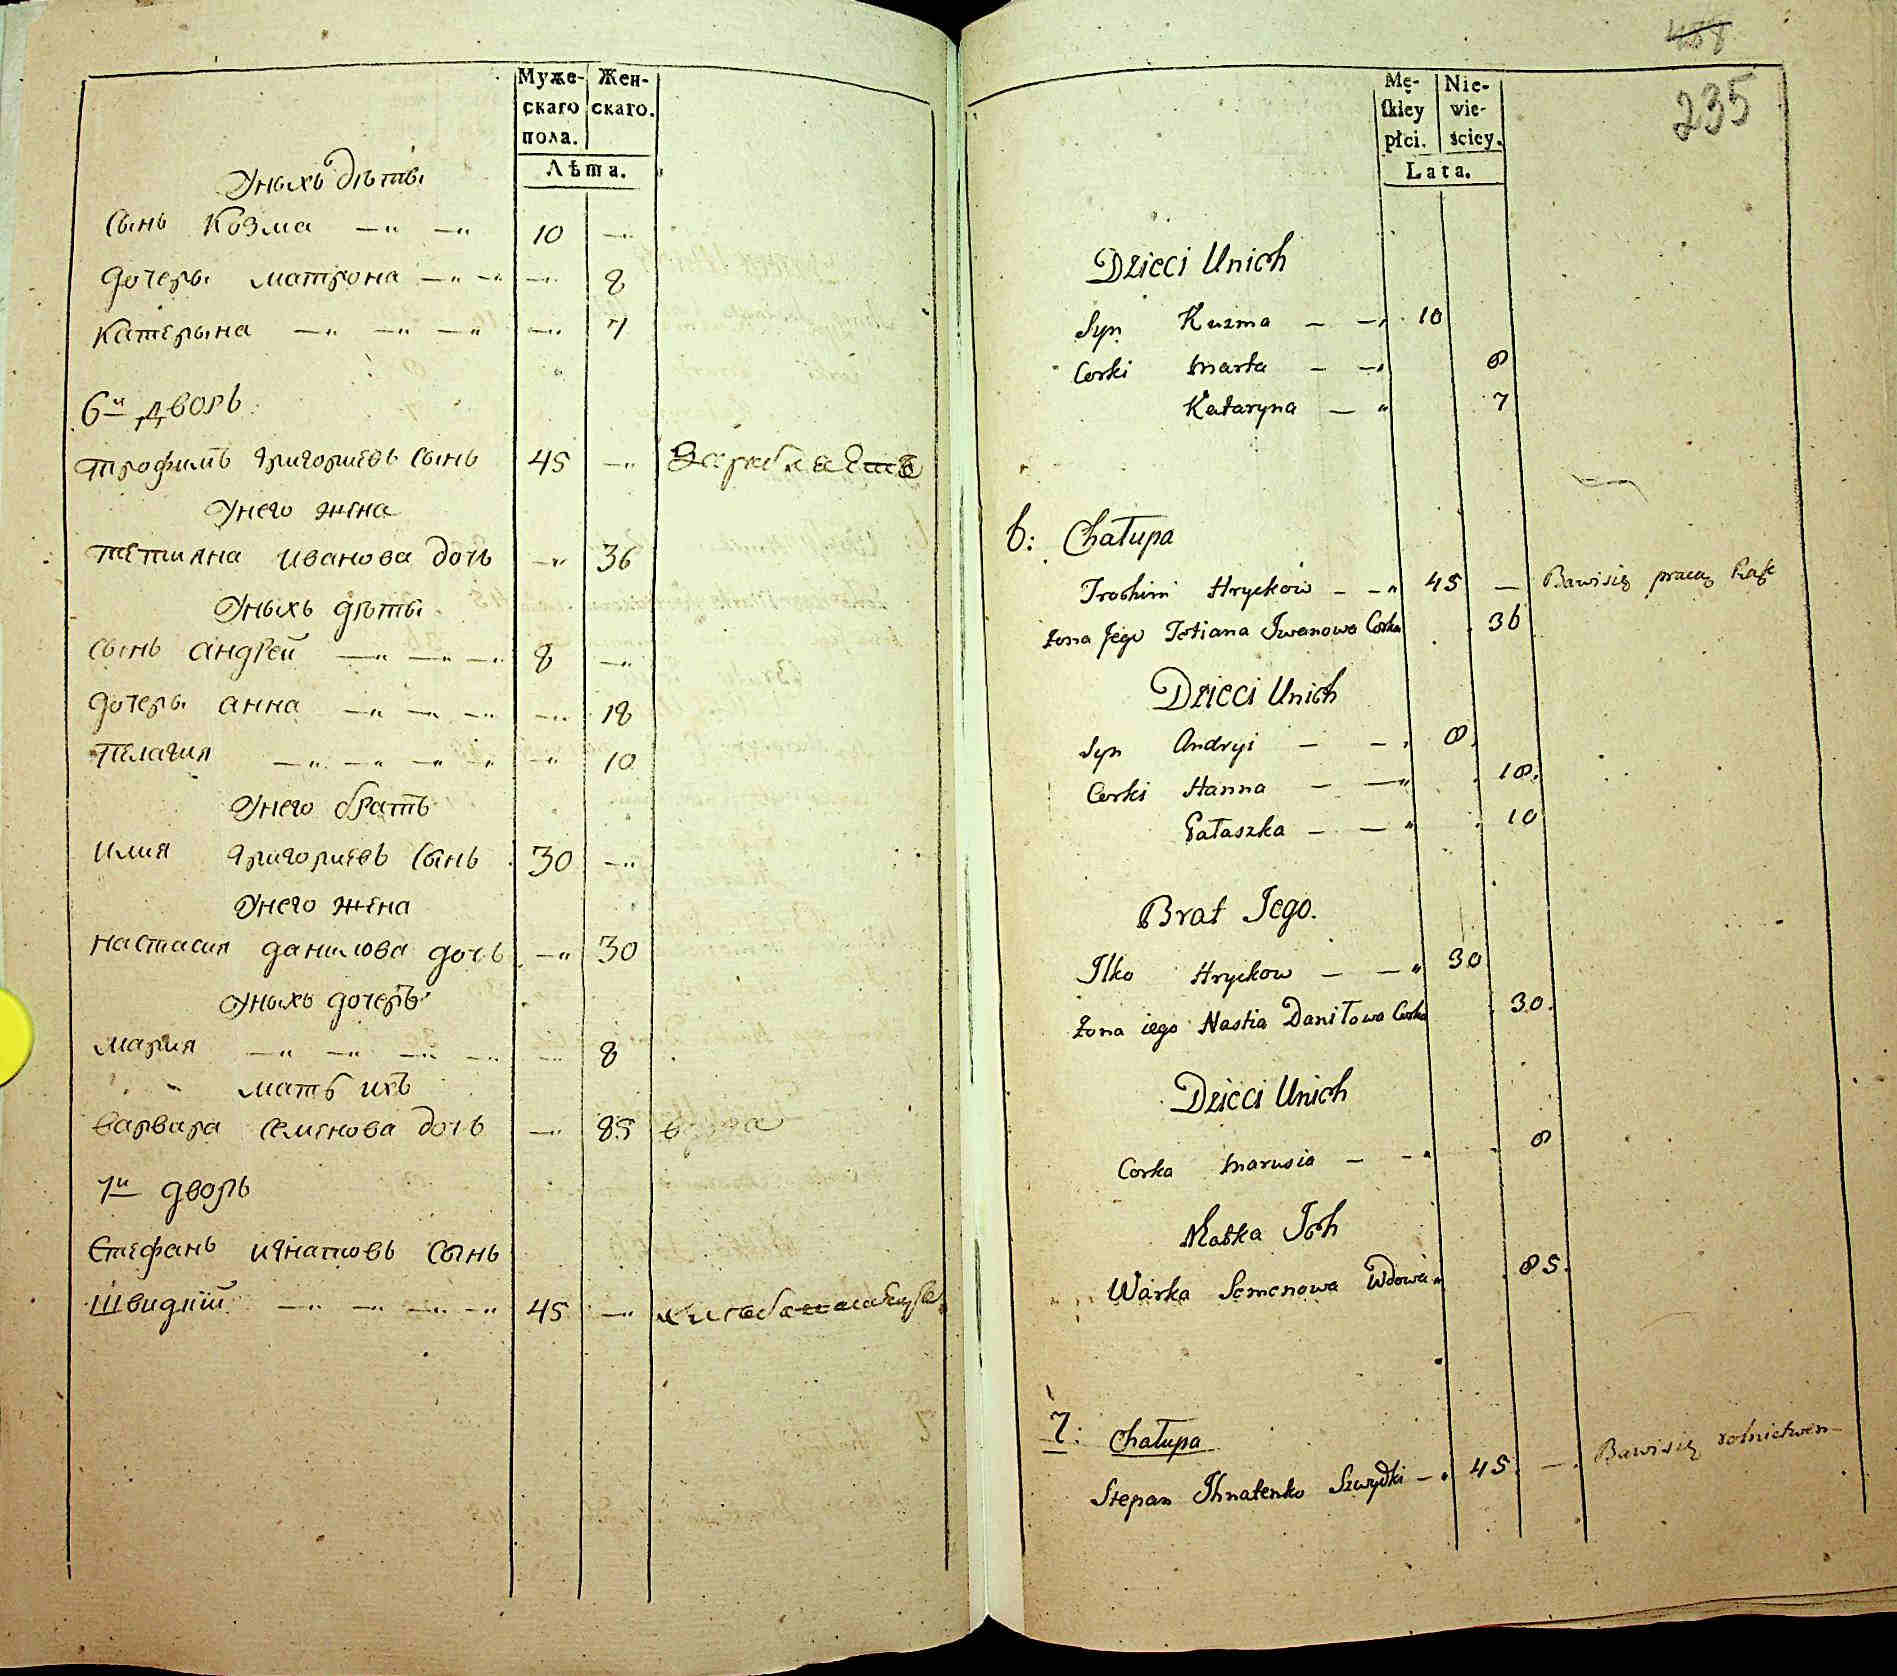 Муже- Жен-
скаго скаго.
пола.
Лѣта.
Уныхъ дѣти
сынъ Козма — — 10 —
дочери матрона — — — 8
Катерына — — — — 7
6й дворъ
трофимъ григориевъ сынъ 45 —
Унего жена
тетияна иванова дочь — 36
Уныхъ дѣти
сынъ андрей — — — 8 —
дочери анна — — — — 18
пелагия — — — — — 10
Унего братъ
илия григориевъ сынъ 30 —
Унего жена
настасия данилова дочь — 30
Уныхъ дочеръ
мария — — — — — 8
мать ихъ
варвара семенова дочь — 85 вдова
7й дворъ
Стефанъ игнатовъ сынъ
Швидкий — — — — 45 —
458
235
Mę- Nie-
skiey wie-
płci. ściey.
Lata.
Dzieci Unich
Syn Kuzma — — 10
Corki Marta — — 8
Kataryna — 7
6: Chałupa
Trochim Hryckow — — 45 — Bawisię pracą Rąk
Zona Jego Tetiana Iwanowa Corka 36
Dzieci Unich
Syn Andryi — — 8
Corki Hanna — — 18.
Pałaszka — — 10
Brat Jego.
Ilko Hryckow — — 30
Zona iego Nastia Daniłowa Corka 30.
Dzieci Unich
Corka Marusia — — 8
Matka Ich
Warka Semenowa Wdowa 85.
7: Chałupa
Stepan Ihnatenko Szwydki — 45. — Bawisię rolnictwem